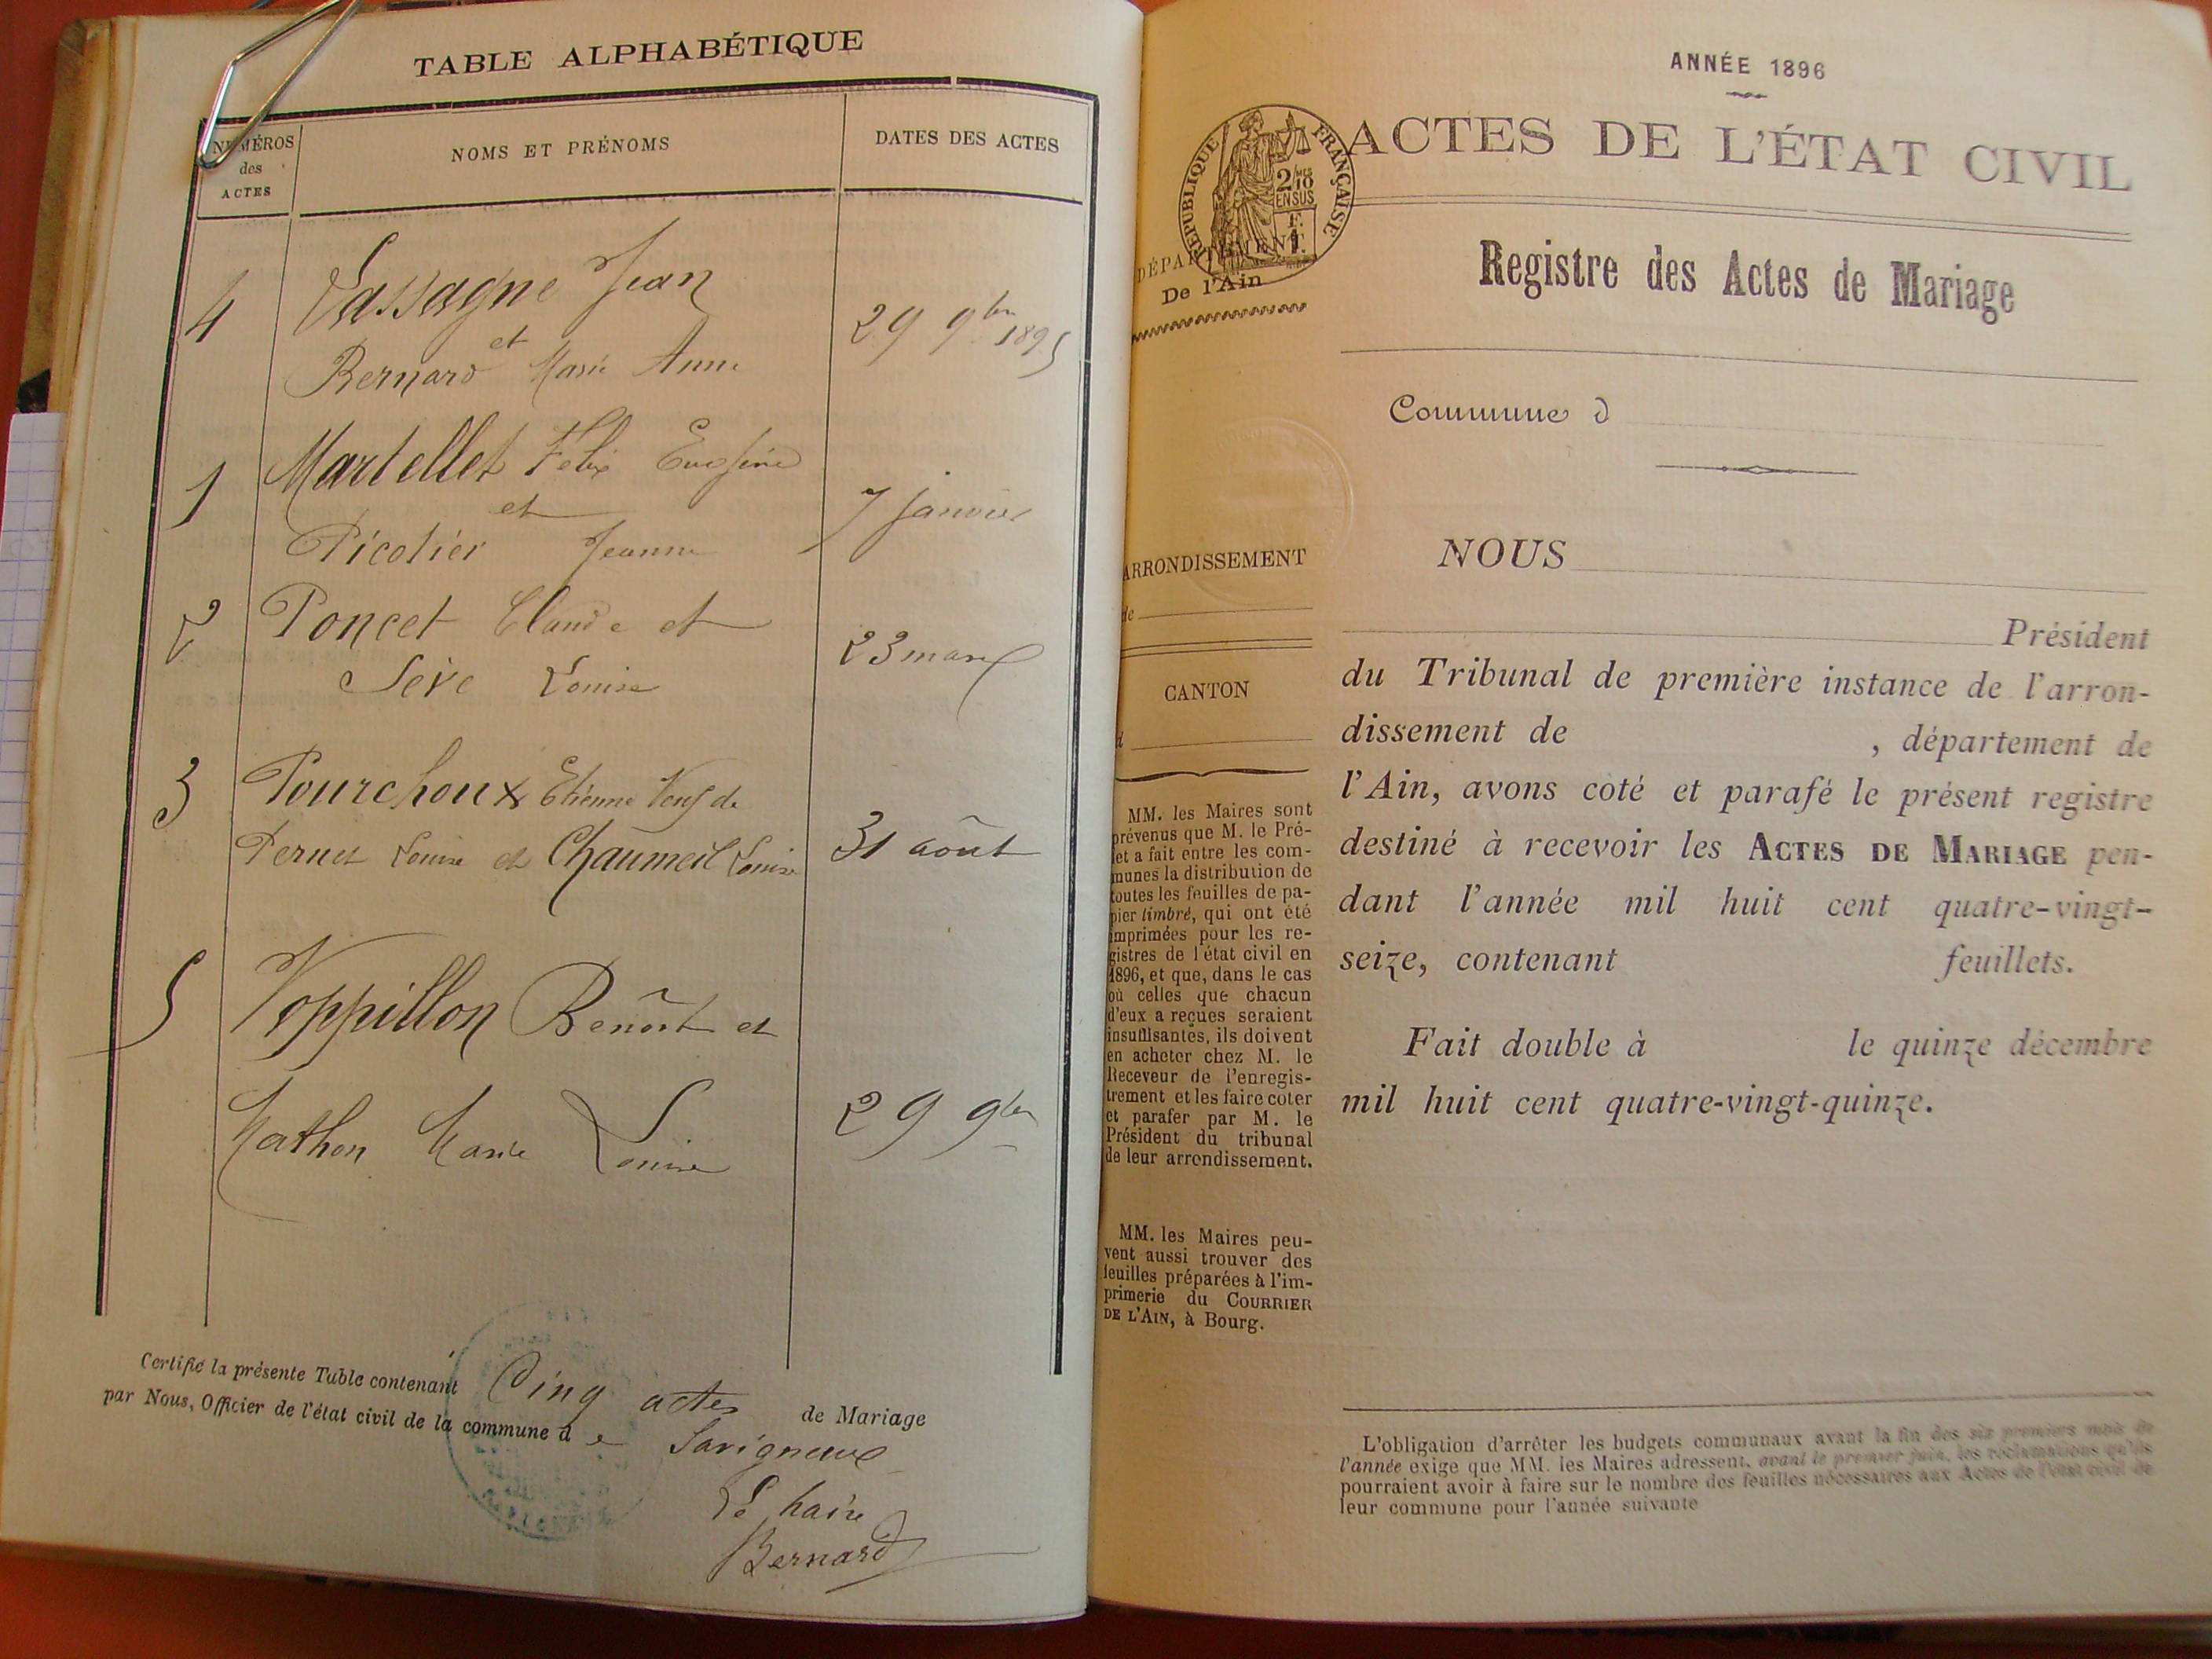 TABLE ALPHABÉTIQUE
NUMÉROS
des
ACTES
NOMS ET PRÉNOMS
DATES DES ACTES
4
Lassagne Jean
et
Bernard Marie Anne
29 9bre 1895
1
Martellet Felix Eugénie
et
Picotier Jeanne
7 janvier
2
Poncet Claude et
Sève Louise
23 mars
3
Pourchoux Etienne Veuf de
Pernet Louise et Chaumeil Louise
31 août
5
Voppillon Benoît et
Mathon Marie Louise
29 9bre
Certifié la présente Table contenant Cinq actes de Mariage
par Nous, Officier de l'état civil de la commune d e Savigneux
Le Maire
Bernard
ANNÉE 1896
ACTES DE L'ÉTAT CIVIL
RÉPUBLIQUE FRANÇAISE
2/10
EN SUS
DÉPARTEMENT
De l'Ain
Registre des Actes de Mariage
Commune d
ARRONDISSEMENT
de
CANTON
d
MM. les Maires sont
prévenus que M. le Pré-
fet a fait entre les com-
munes la distribution de
toutes les feuilles de pa-
pier timbré, qui ont été
imprimées pour les re-
gistres de l'état civil en
1896, et que, dans le cas
où celles que chacun
d'eux a reçues seraient
insuffisantes, ils doivent
en acheter chez M. le
Receveur de l'enregis-
trement et les faire coter
et parafer par M. le
Président du tribunal
de leur arrondissement.
MM. les Maires peu-
vent aussi trouver des
feuilles préparées à l'im-
primerie du COURRIER
DE L'AIN, à Bourg.
NOUS
Président
du Tribunal de première instance de l'arron-
dissement de , département de
l'Ain, avons coté et parafé le présent registre
destiné à recevoir les ACTES DE MARIAGE pen-
dant l'année mil huit cent quatre-vingt-
seize, contenant feuillets.
Fait double à le quinze décembre
mil huit cent quatre-vingt-quinze.
L'obligation d'arrêter les budgets communaux avant la fin des six premiers mois de
l'année exige que MM. les Maires adressent, avant le premier juin, les réclamations qu'ils
pourraient avoir à faire sur le nombre des feuilles nécessaires aux Actes de l'état civil de
leur commune pour l'année suivante